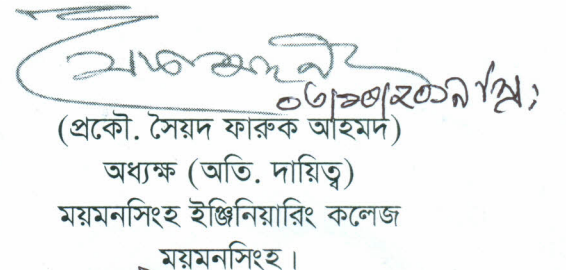 ০৩/১০/২০১৯ খ্রি:
(প্রকৌ. সৈয়দ ফারুক আহমদ)
অধ্যক্ষ (অতি. দায়িত্ব)
ময়মনসিংহ ইঞ্জিনিয়ারিং কলেজ
ময়মনসিংহ।